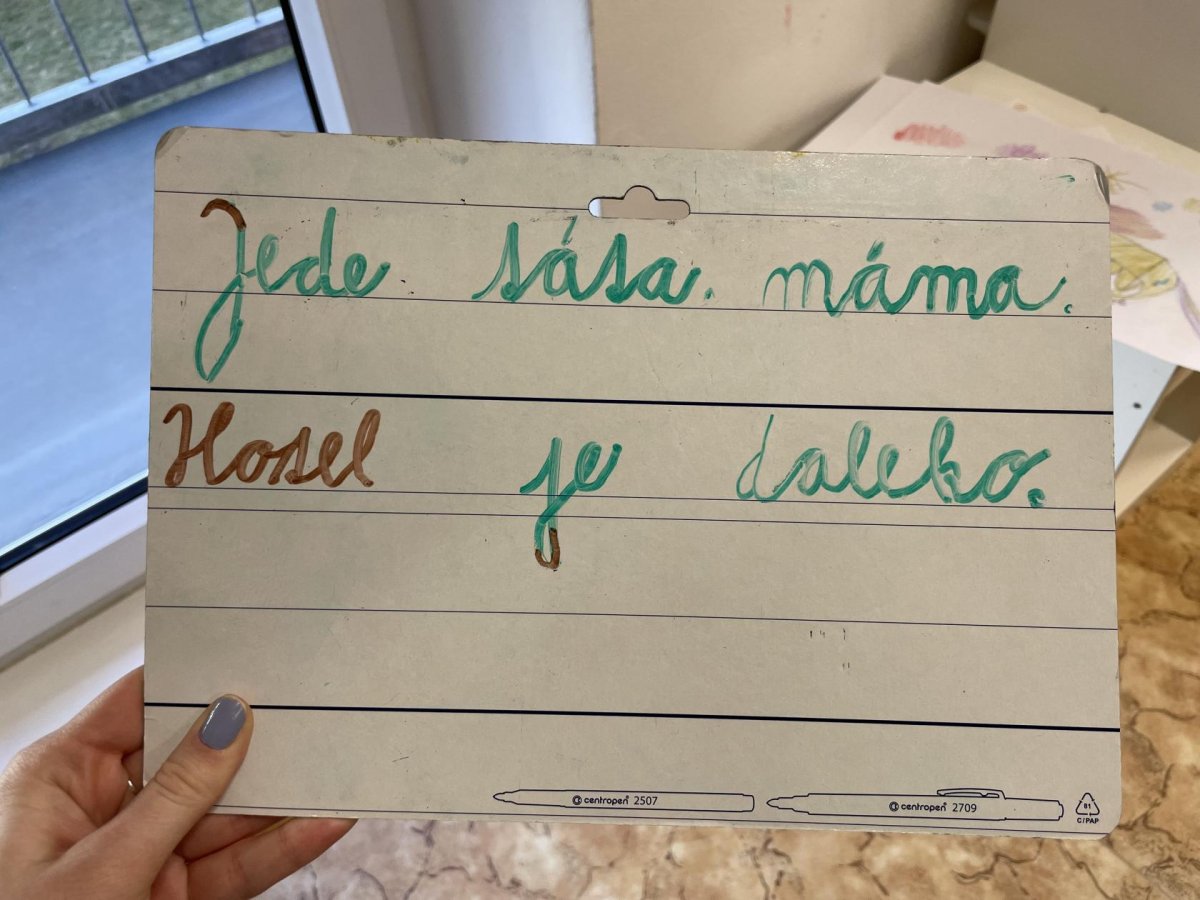 Jede sása. máma.
Hosel je daleko.
centropen® 2507
centropen® 2709
81
C/PAP